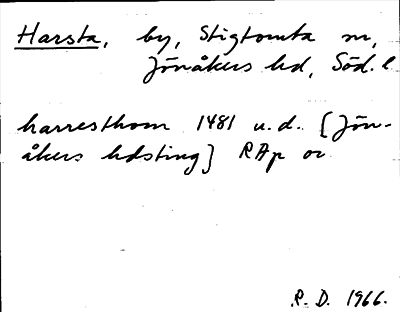 Harsta, by, Stigtomta sn,
Jönåkers hd, Söd. l
harresthom 1481 u.d. [Jön-
åkers hdsting] RAp or
R. D. 1966.